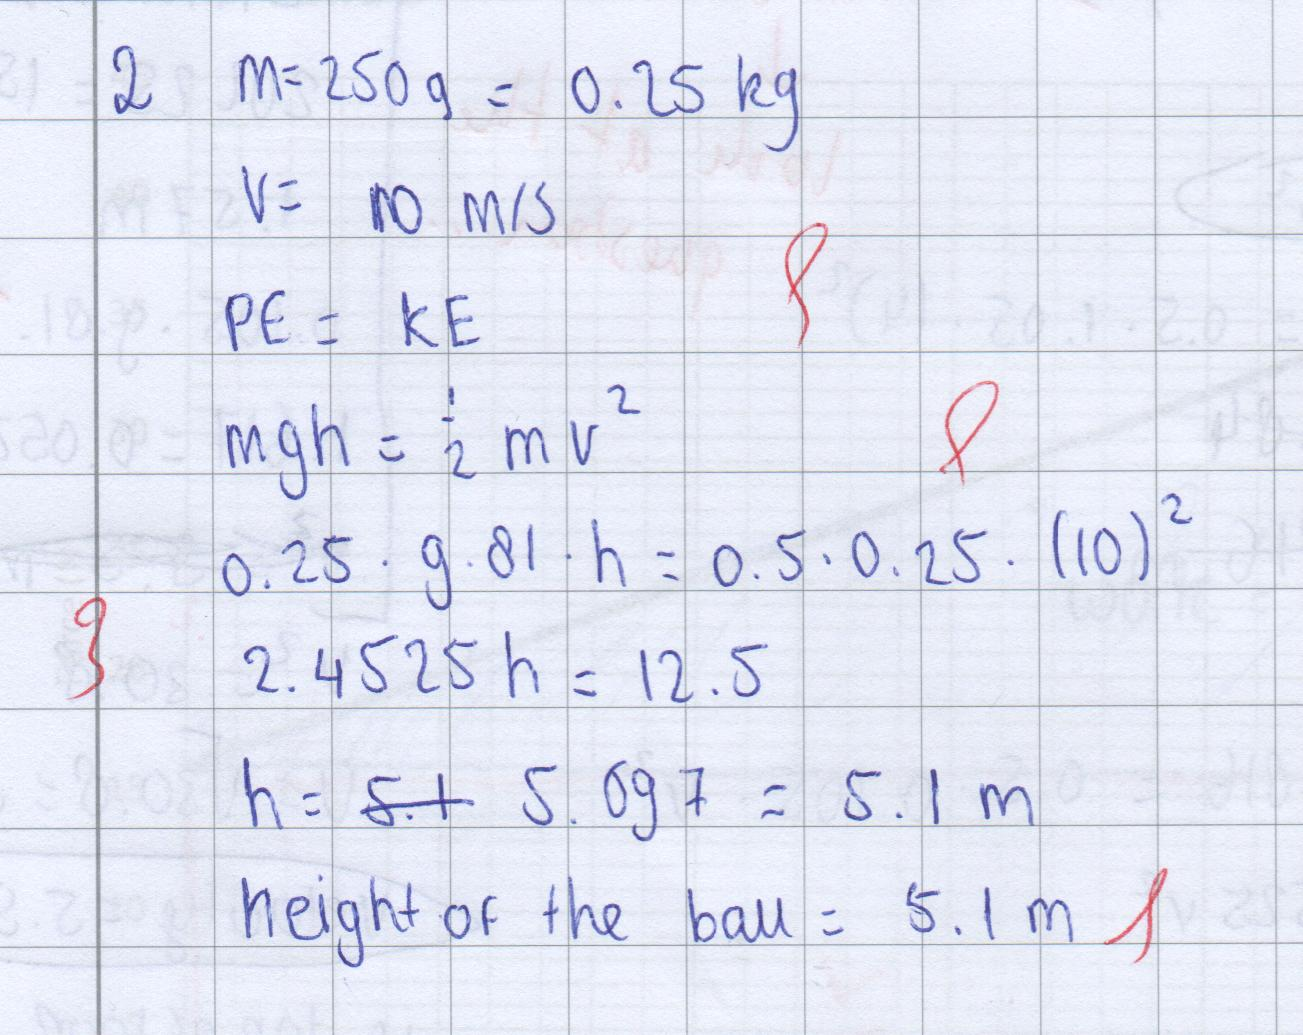 2 m= 250 g = 0.25 kg
V= 10 m/s
PE = KE
mgh = 1/2 mv²
0.25 · 9.81 · h = 0.5 · 0.25 · (10)²
2.4525 h = 12.5
h = 5.1 5.097 = 5.1 m
height of the ball = 5.1 m